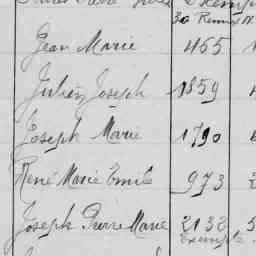 30 Rennes
Jean Marie 455
Julien Joseph 1859
Joseph Marie 1790
René Marie Emile 973
Joseph Pierre Marie 2132
Exempté